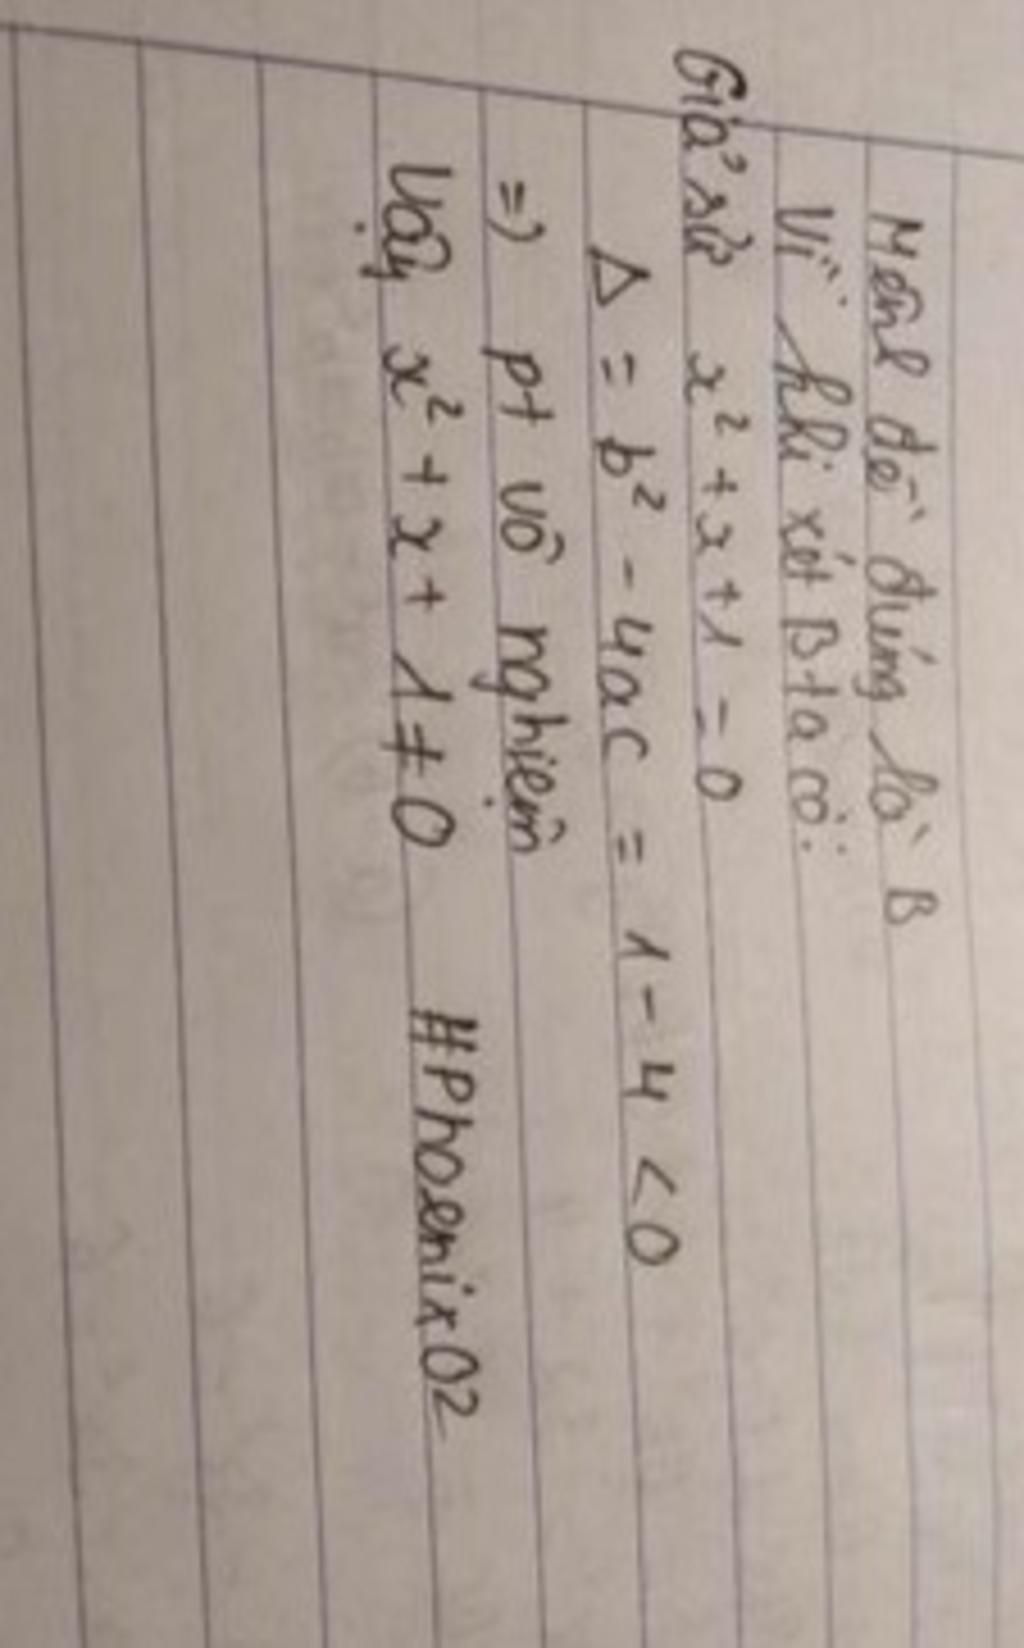 Mệnh đề đúng là B
Vì: khi xét B ta có:
Giả sử x² + x + 1 = 0
Δ = b² - 4ac = 1 - 4 < 0
=> pt vô nghiệm
Vậy x² + x + 1 ≠ 0 #Phoenix02